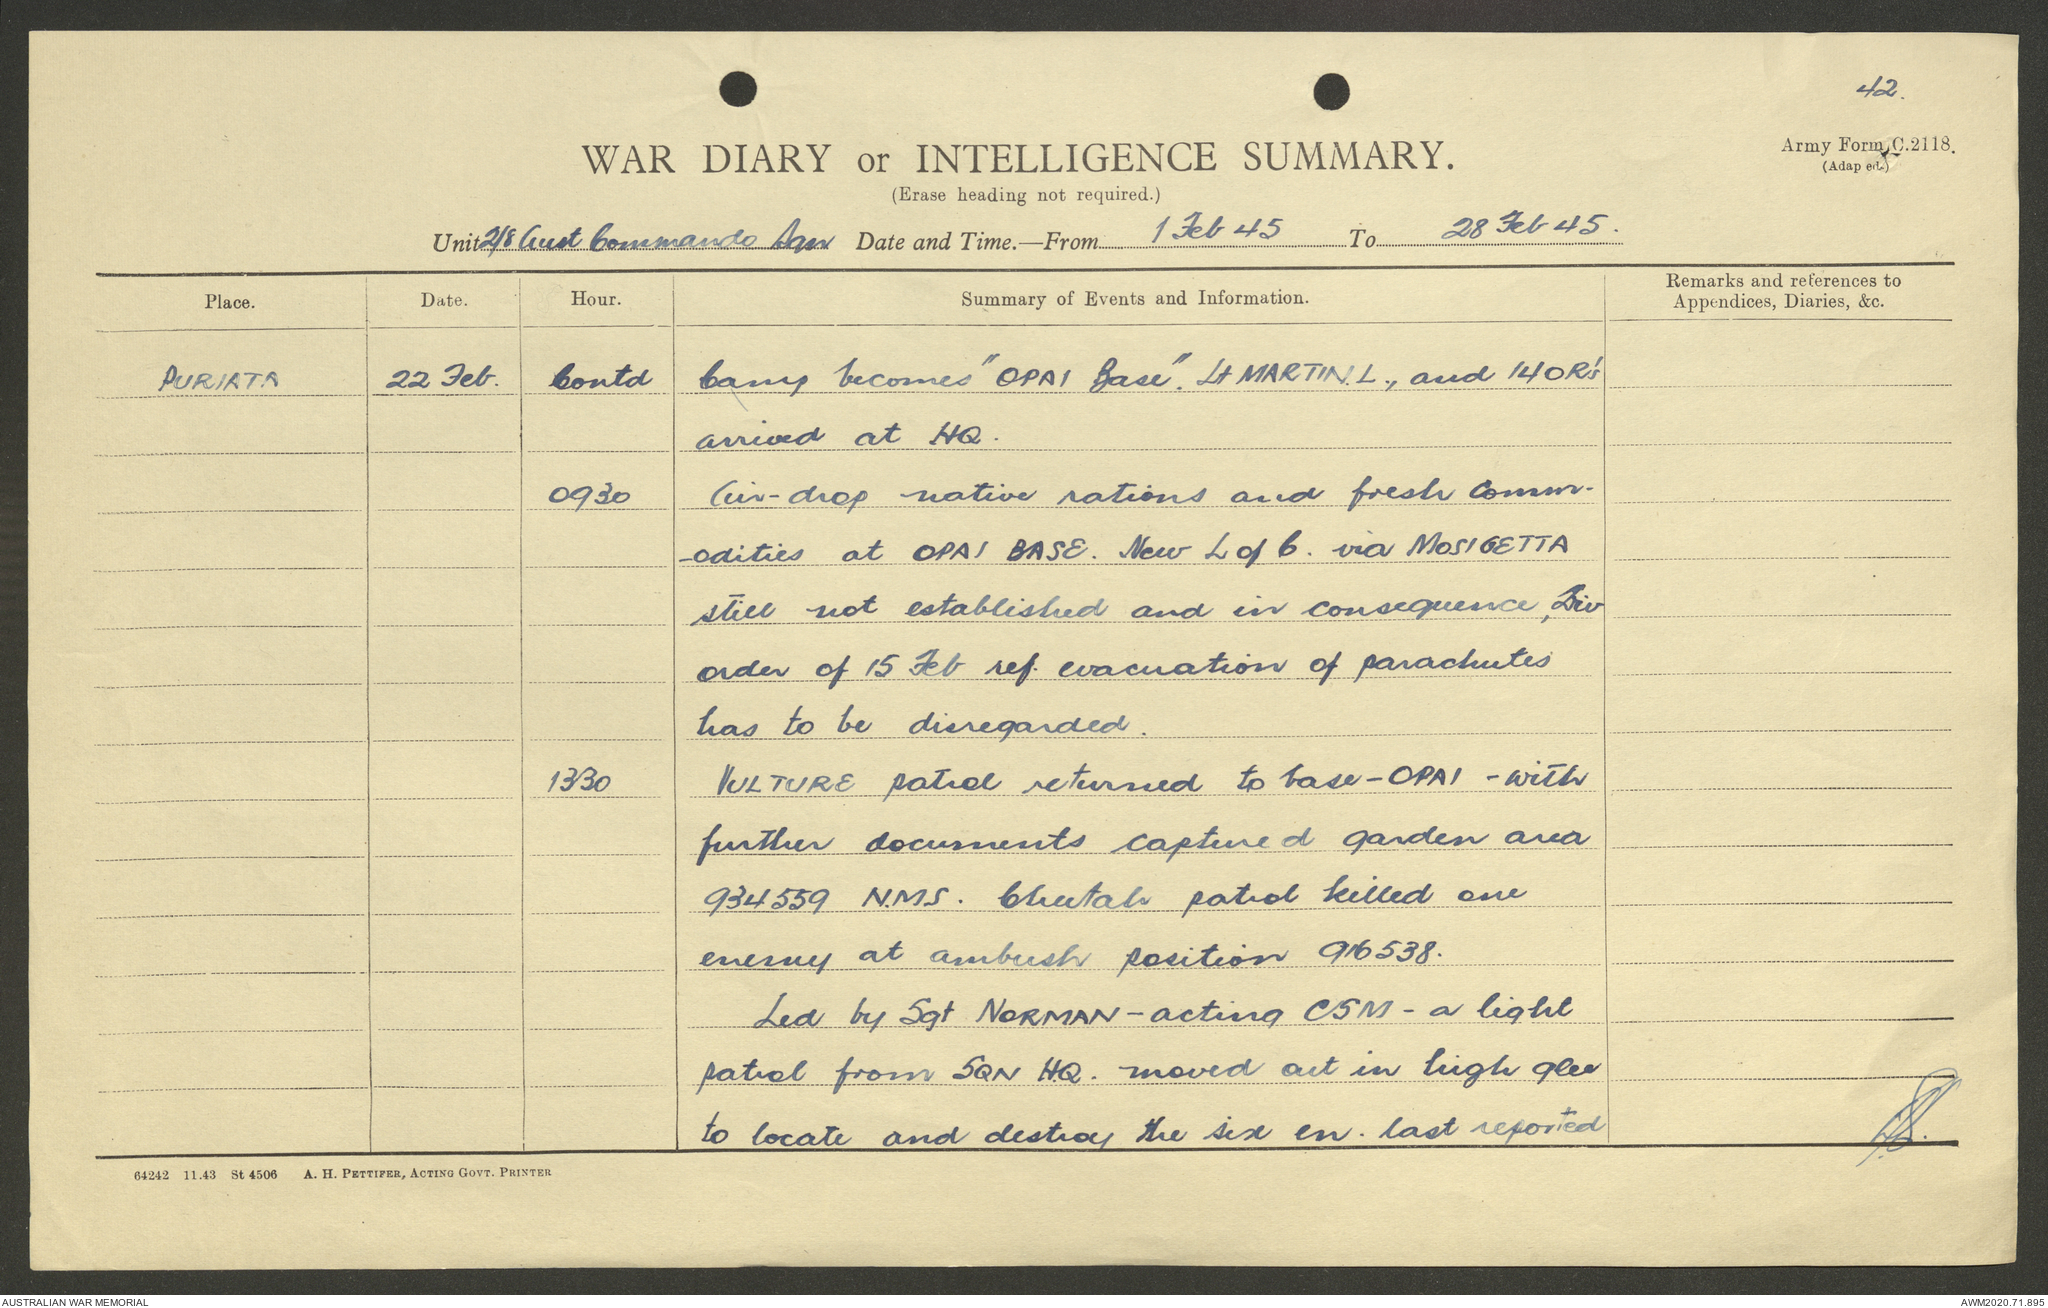 42.
Army Form C.2118.
(Adap ed.)
WAR DIARY or INTELLIGENCE SUMMARY.
(Erase heading not required.)
Unit 2/8 Aust Commando Sqn Date and Time.—From 1 Feb 45 To 28 Feb 45.
Place. Date. Hour. Summary of Events and Information. Remarks and references to Appendices, Diaries, &c.
PURIATA 22 Feb. Contd Camp becomes "OPAI Base". Lt MARTIN.L., and 14 OR's
arrived at HQ.
0930 Air-drop native rations and fresh comm-
-odities at OPAI BASE. New L of C. via MOSIGETTA
still not established and in consequence, Div
order of 15 Feb ref. evacuation of parachutes
has to be disregarded.
1330 VULTURE patrol returned to base - OPAI - with
further documents captured garden area
934559 N.M.S. Cheetah patrol killed one
enemy at ambush position 916538.
Led by Sgt NORMAN - acting CSM - a light
patrol from SQN HQ. moved out in high glee
to locate and destroy the six en. last reported
64242 11.43 St 4506 A. H. PETTIFER, ACTING GOVT. PRINTER
AUSTRALIAN WAR MEMORIAL
AWM2020.71.895